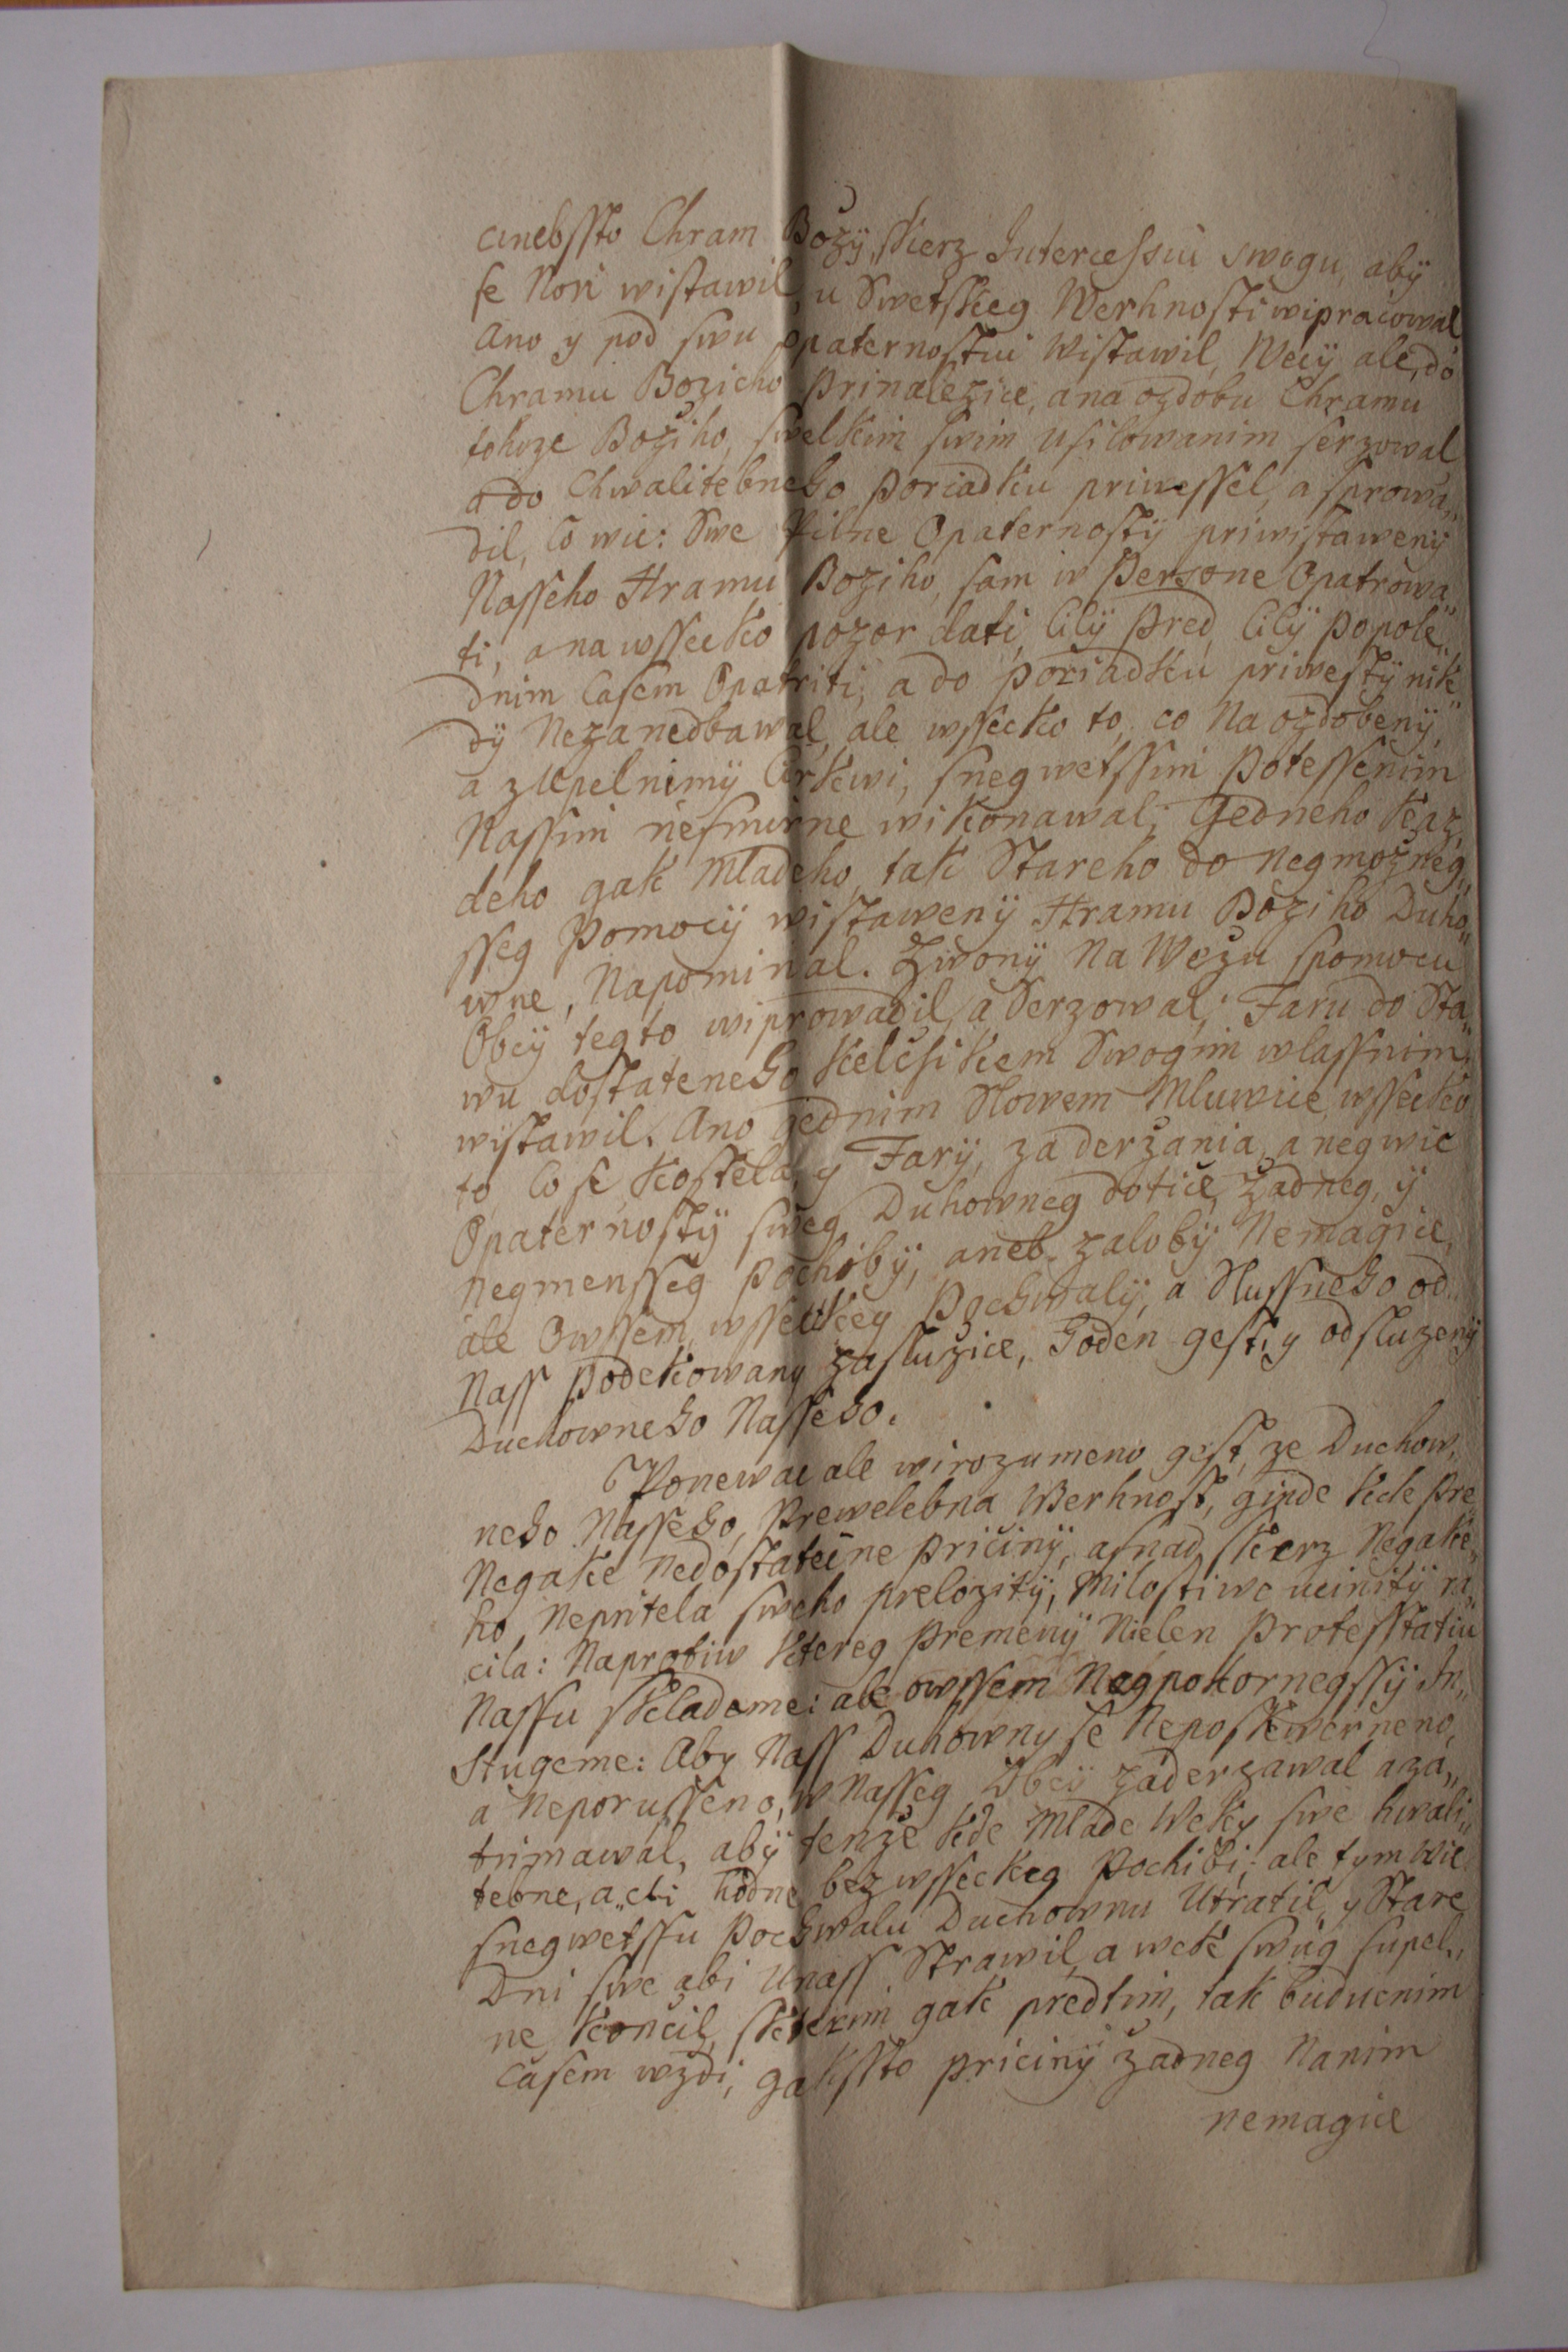 anebssto Chram Božÿ, skerz Intercessiu swogu, abÿ
se Nori wistawil, u Swetskeg Werhnosti wipracowal
Ano y pod swu opaternostui Wistawil, Wecÿ ale, do
Chramu Bozieho Prinalezice, a na ozdobu Chramu
tohoze Božiho, swelkim swim usilowanim serzowal
a do Chwalitebneho Poriadku priwessel, a sprowa„
dil, Co wic: Swe Pilne Opaternostÿ priwistawenÿ
Nasseho Hramu Boziho, sam w Persone Opatrowa„
ti, a na wssecko pozor dati, Cilÿ Pred, Cilÿ Popole„
dnim Casem Opatriti, a do poriadku priwestÿ nik„
dÿ Nezanedbawal, ale wssecko to, co Na ozdobenÿ,
a zupelnimÿ Cirkewi, snegwetssim Potessenim
Nassim nesmirne wikonawal; Gedneho kaz„
deho gak Mladeho, tak Stareho do negmožneg„
sseg Pomocÿ wistawenÿ Hramu Božiho Duho„
wne, Napominal. Zwonÿ Na Wežu spomocu
Obcÿ tegto wiprowadil, a Serzowal; Faru do Sta„
wu dostateneho kelčikem Swogim wlassnim
wistawil. Ano gednim Slowem Mluwice, wssecko
to, Co se kostela, y Farÿ, zaderžania, a negwic
Opaternostÿ sweg Duhowneg dotice, Žadneg, ÿ
Negmensseg Pochibÿ, aneb zalobÿ Nemagice,
ale Owssem wsseckeg Pochwalÿ, a Slussneho od„
Nass Podekowany zaslužice, Goden gest, y odsluzenÿ
Duchowneho Nasseho.
Ponewac ale wirozumeno gest, ze Duchow„
neho Nasseho, Prewelebna Werhnost, ginde kde Pre
Negake nedostatečne Pričinÿ, asnad skerz Negake„
ho Nepritela sweho prelozitÿ, Milostiwe ucinitÿ ra„
cila: Naprotiw ktereg Premenÿ Nielen Protesstatiu
Nassu skladame: ale owssem Negpokornegssÿ In„
stugeme: Aby Nass Duhowny se Neposkwerneno,
a Neporusseno, w Nasseg Obcÿ zaderzawal a za„
trimawal, abÿ tenže kde Mlade Weky swe hwali„
tebne, a cti hodne bez wsseckeg Pochibi; ale tym wic
snegwetssu Pochwalu Duchownu Utratil, y Stare
Dni swe abi unass Strawil, a wek swüg supel„
ne končil, skterim gak predtim, tak buducnim
Časem wzdi, gaksto pricinÿ žadneg Nanim
nemagice